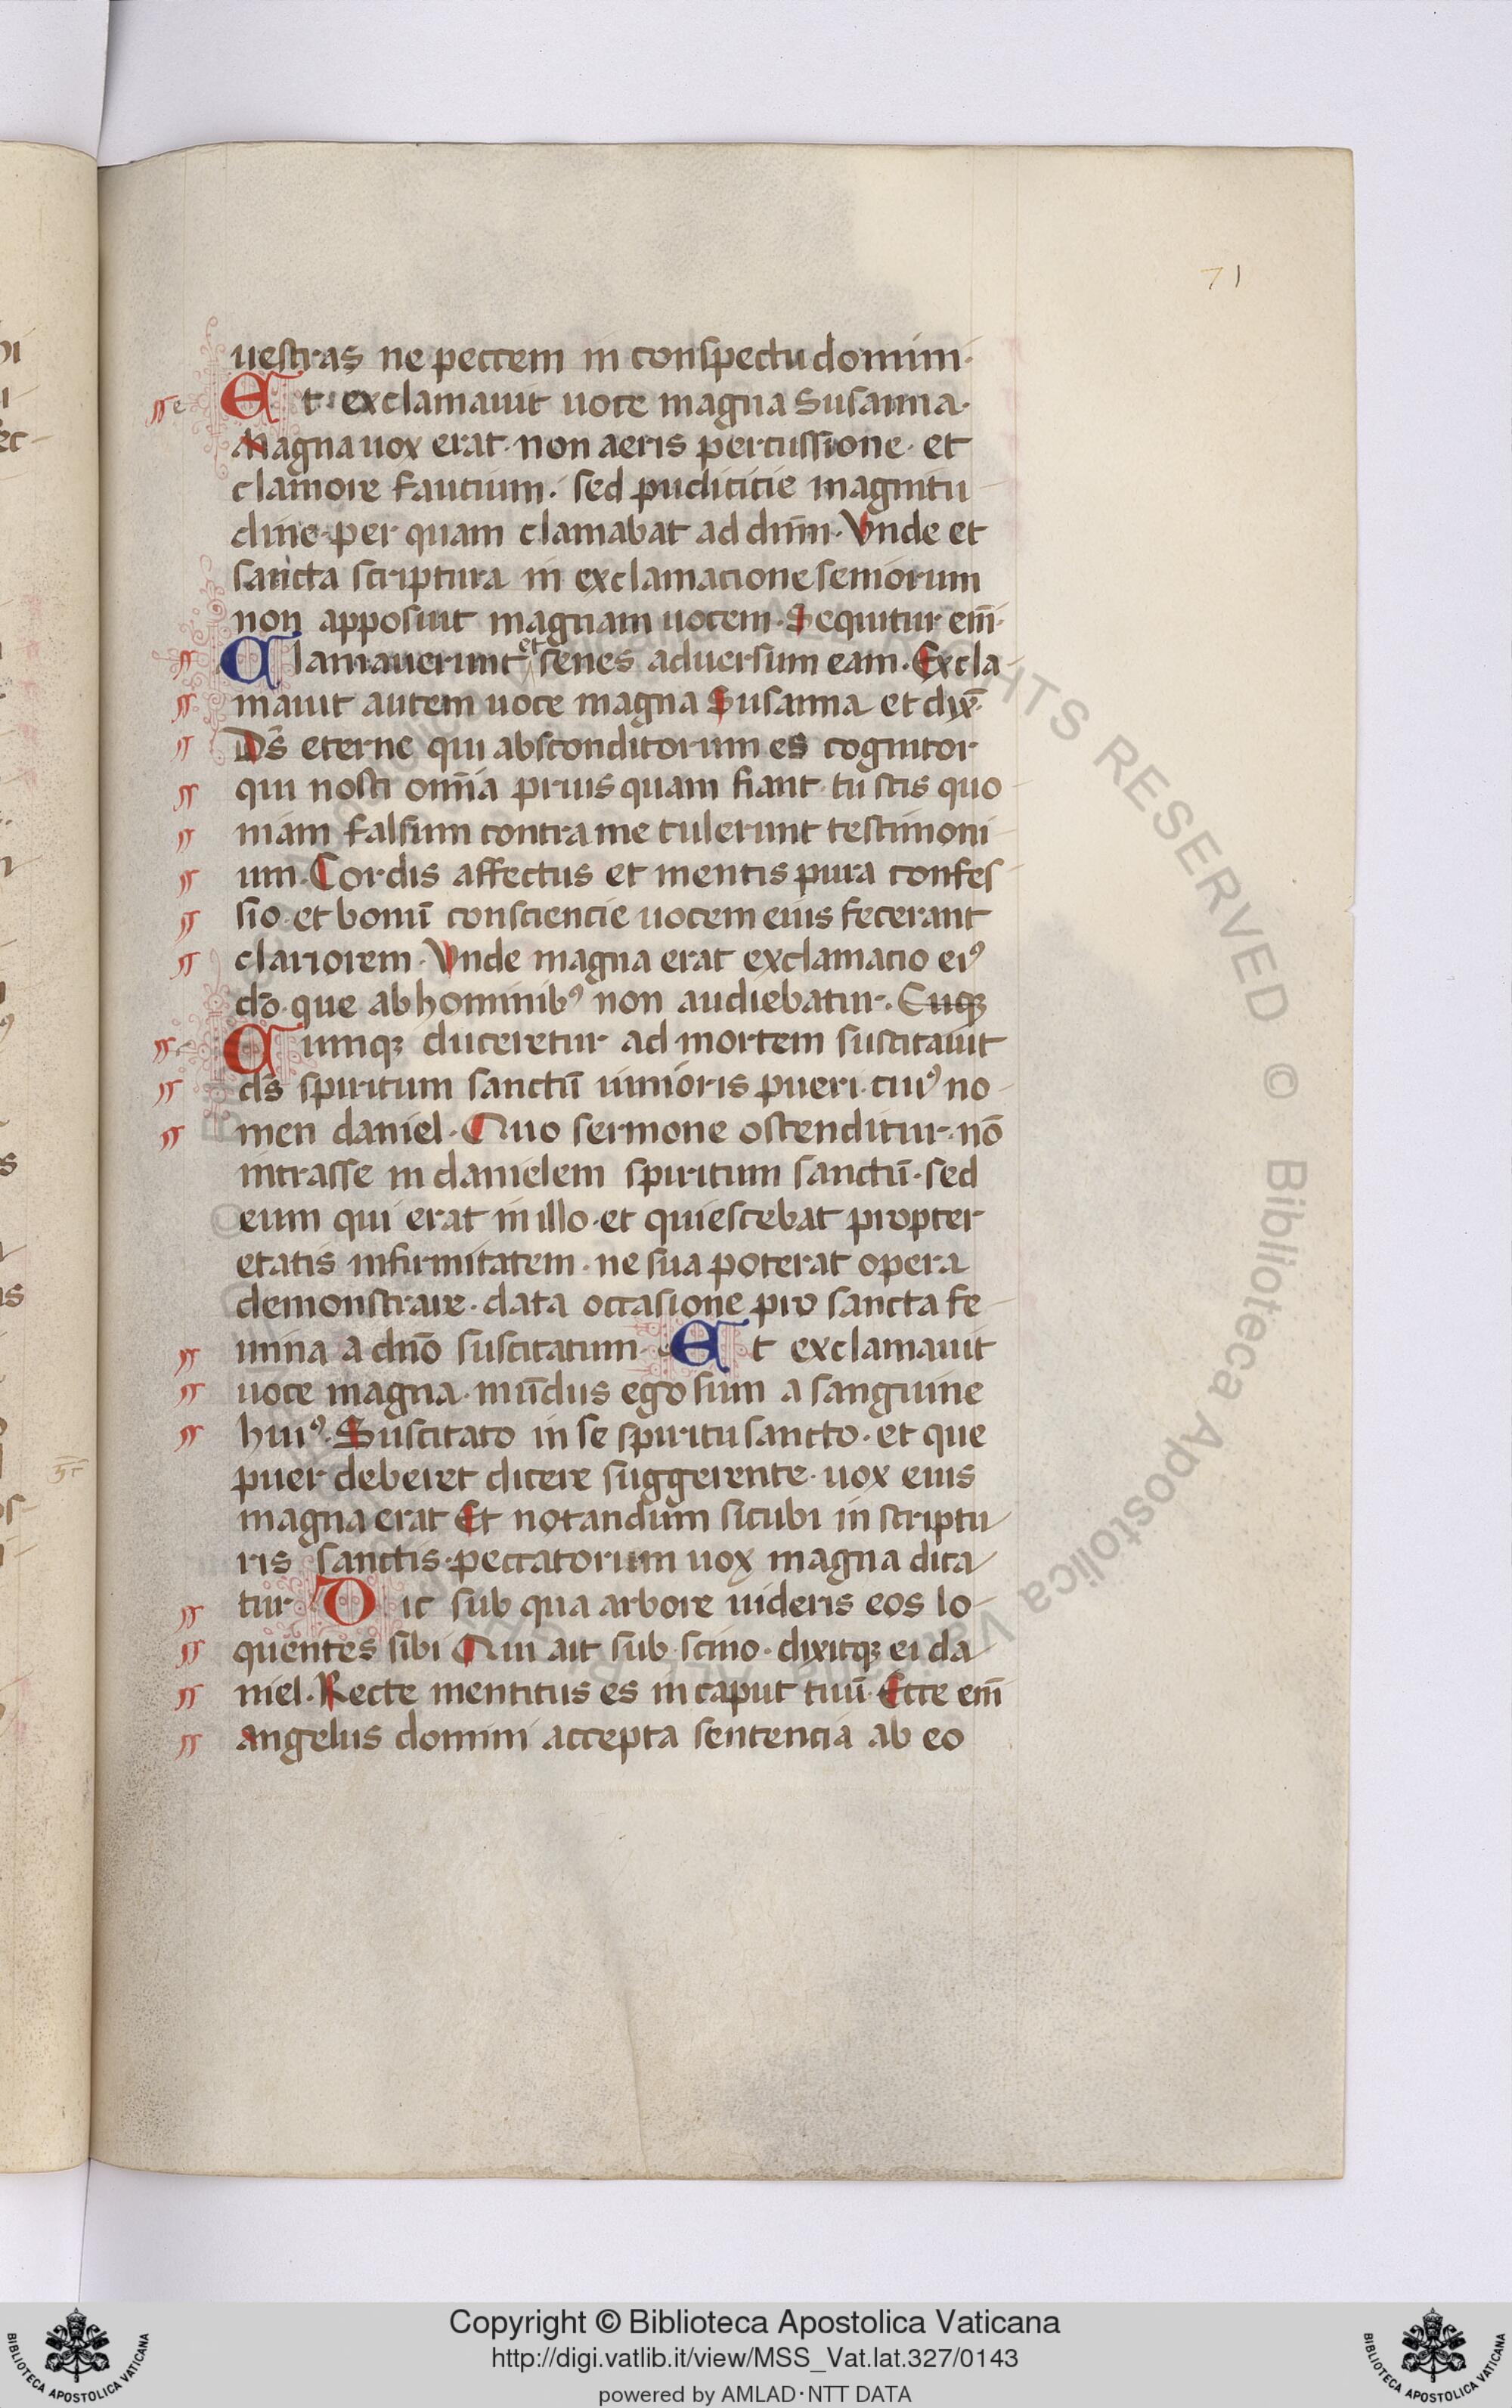 71
uestras ne peccem in conspectu domini·
Et exclamauit uoce magna Susanna·
Magna uox erat· non aeris percussione· et
clamore faucium· sed pudicicie magnitu
dine· per quam clamabat ad dnm̄· Vnde et
sancta scriptura in exclamacione seniorum
non apposuit magnam uocem· Sequitur em̄·
Clamauerunt et senes aduersum eam· Excla
mauit autem uoce magna Susanna et dix̄·
Ds̄ eterne qui absconditorum es cognitor
qui nosti om̄ia prius quam fiant· tu scis quo
niam falsum contra me tulerunt testimoni
um· Cordis affectus et mentis pura confes
sio· et bonū consciencie uocem eius fecerant
clariorem· Vnde magna erat exclamacio eiꝰ
dō· que ab hominibꝰ non audiebatur· Cuqꝫ
Cumqꝫ duceretur ad mortem suscitauit
ds̄ spiritum sanctū iunioris pueri· cuiꝰ no
men daniel· Quo sermone ostenditur· nō
intrasse in danielem spiritum sanctū· sed
eum qui erat in illo· et quiescebat propter
etatis infirmitatem· ne sua poterat opera
demonstrare· data occasione pro sancta fe
mina a dnō suscitatum· Et exclamauit
uoce magna· mūdus ego sum a sanguine
huiꝰ· Suscitato in se spiritu sancto· et que
puer deberet dicere suggerente· uox eius
magna erat Et notandum sicubi in scriptu
ris sanctis· peccatorum uox magna dica
tur Dic sub qua arbore uideris eos lo
quentes sibi Qui ait sub scino· dixitqꝫ ei da
niel· Recte mentitus es in caput tuū· Ecce em̄
angelus domini accepta sentencia ab eo
RIGHTS RESERVED © Biblioteca Apostolica Vaticana
Copyright © Biblioteca Apostolica Vaticana
http://digi.vatlib.it/view/MSS_Vat.lat.327/0143
powered by AMLAD·NTT DATA
BIBLIOTECA APOSTOLICA VATICANA
BIBLIOTECA APOSTOLICA VATICANA